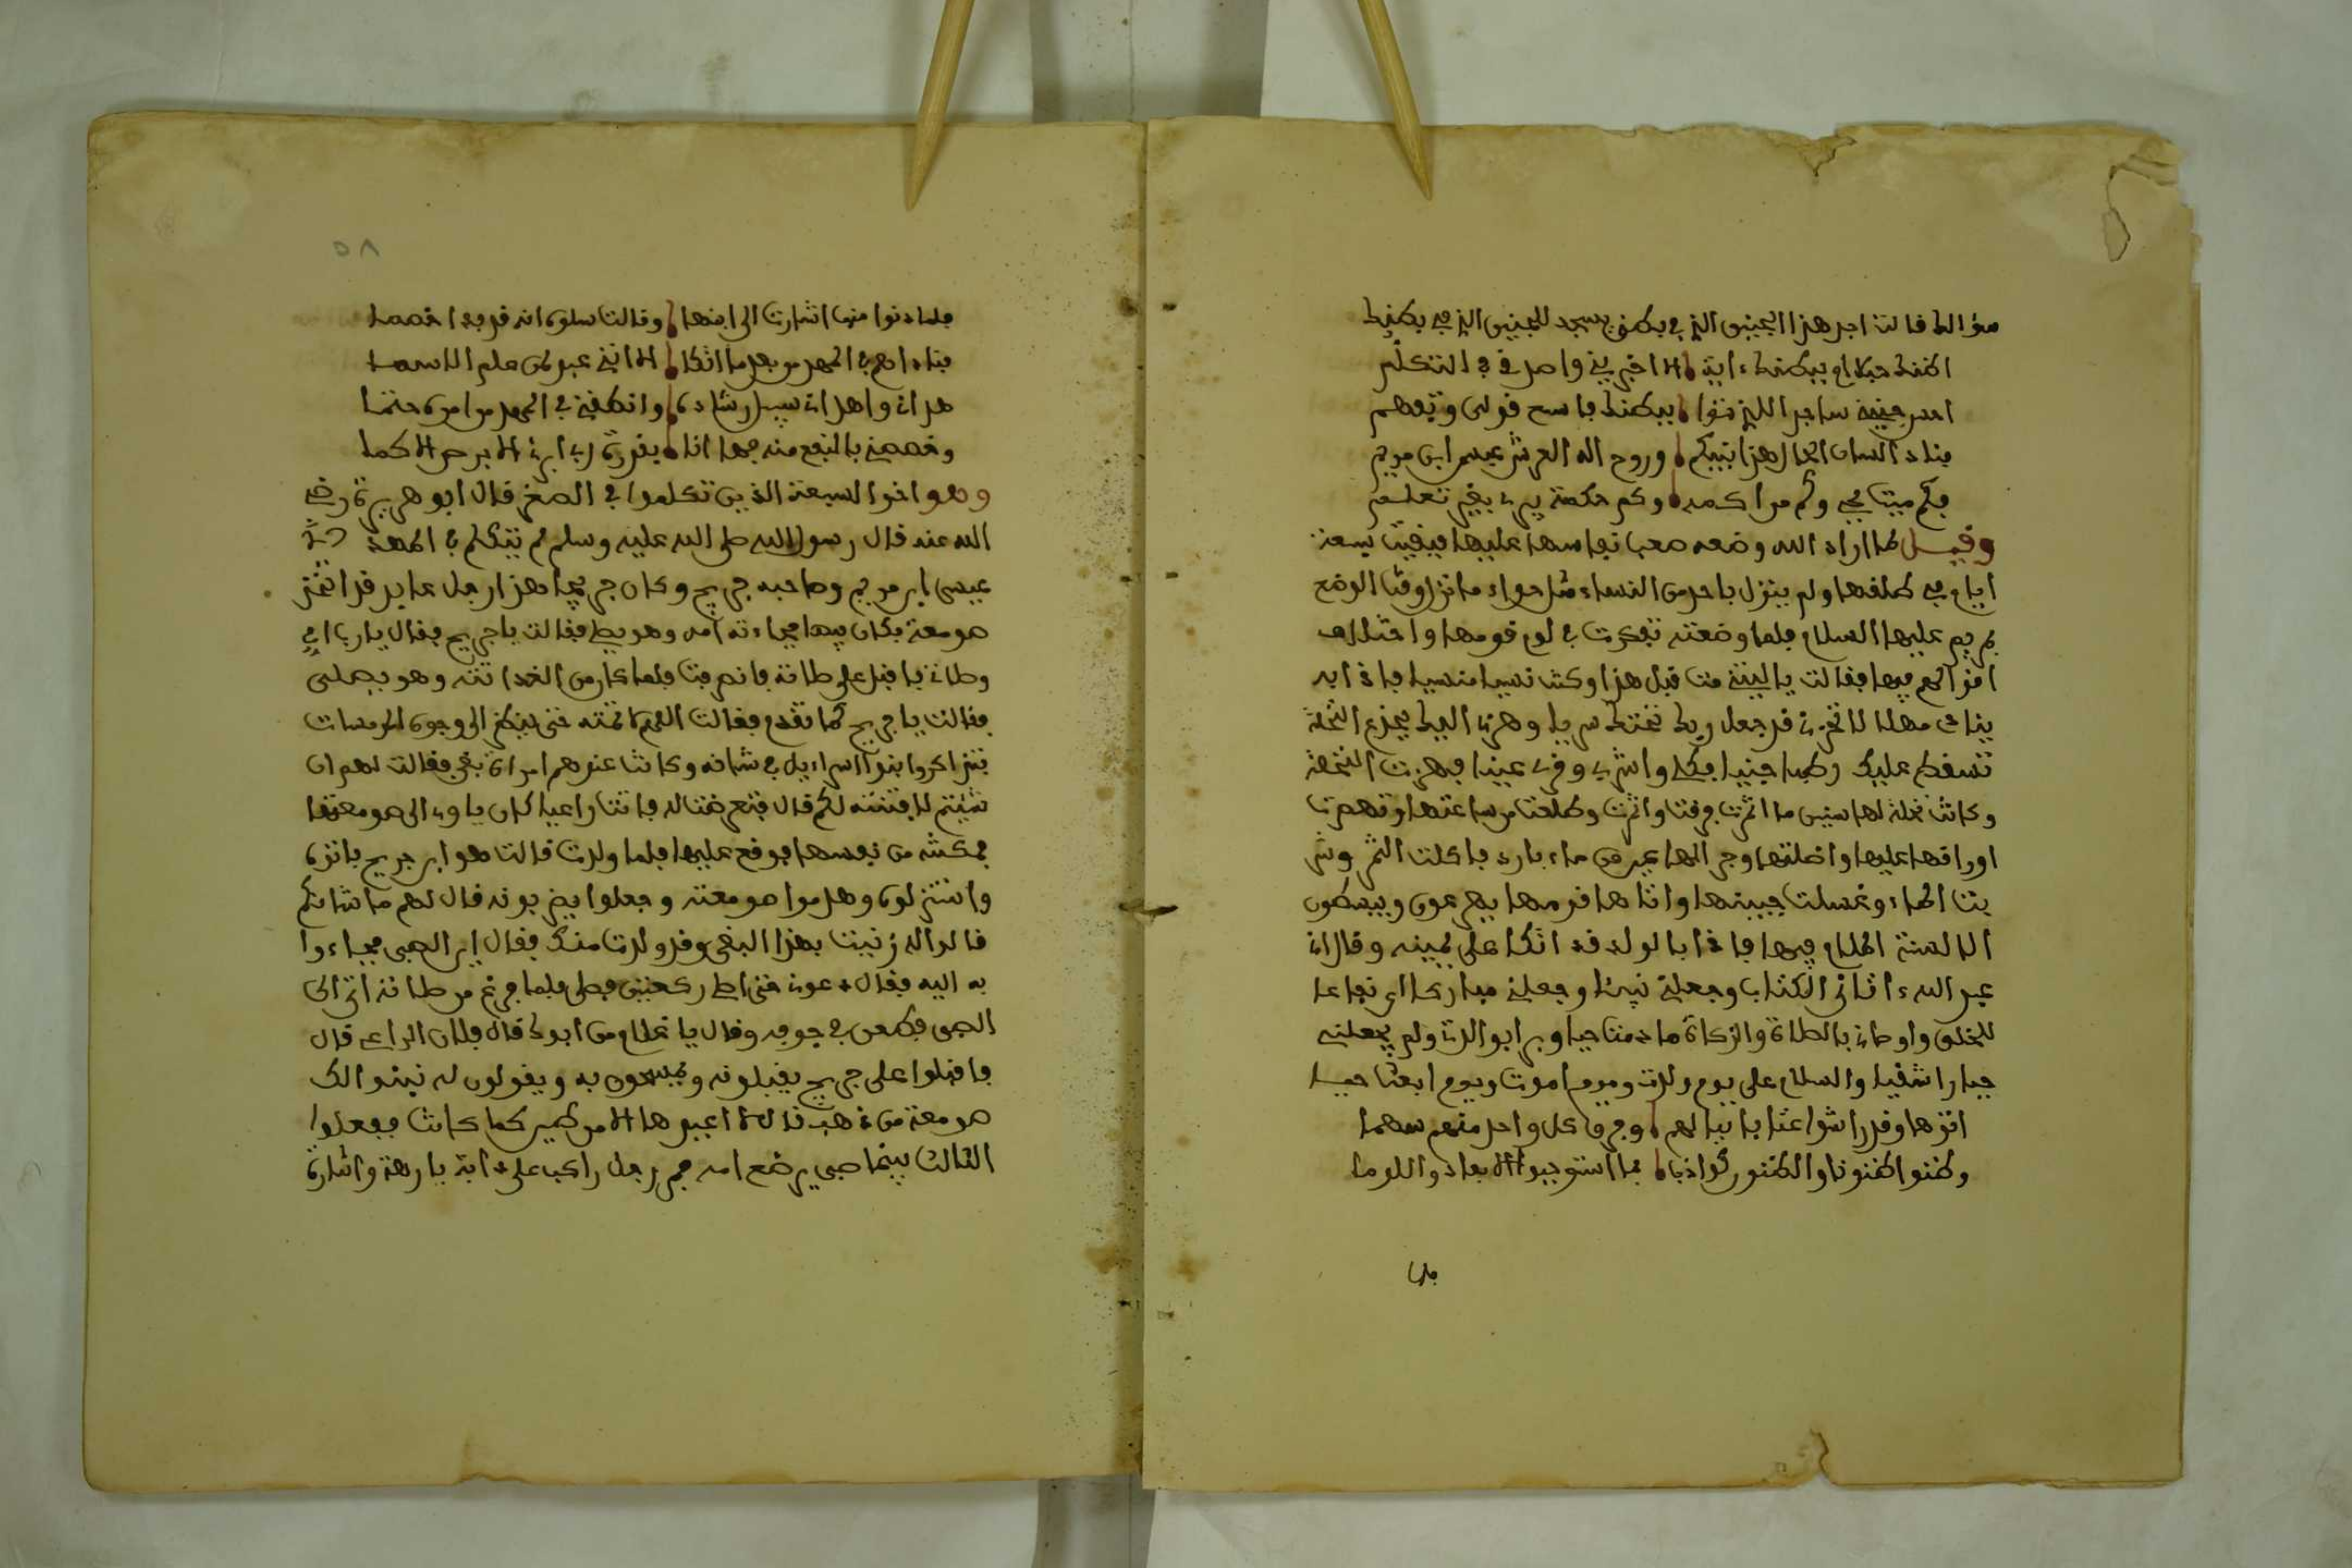 سؤالك قالت اجد هذا الجنين الذي في بطني يسجد للجنين الذي في بطنك
اظنك حبلى ببطنك ءاية الا اخبريني واصدقي في التكلم
احس جنيني ساجدا للذي ثوى ببطنك فاسمع قولي وتفهم
فناد السان الحال هذا نبيكم وروح اله العرش عيسى ابن مريم
فكم ميتا يحيي وكم من اكمه وكم حكمة يبري بغير تعلم
وقيل لما اراد الله وضعه صعب نفاسها عليها فبقيت تسعة
ايام في طلقها ولم ينزل باحد من النساء مثل حواء ما نزل وقت الوضع
بمريم عليها السلام فلما وضعته تفكرت في لوم قومها واختلاف
اقوالهم فيها فقالت يا ليتني مت قبل هذا وكنت نسيا منسيا فاذا به
ينادي مهلا لا تحزني قد جعل ربك تحتك سريا وهزي اليك بجذع النخلة
تسقط عليك رطبا جنيا فكلي واشربي وقري عينا فهزت النخلة
وكانت نخلة لها سنين ما اثمرت فرقت واثمرت وطلعت من ساعتها وتهصرت
اوراقها عليها واظلتها وجرالها عين من ماء بارد فاكلت الثمر وشر
بت الماء وغسلت جبينها واتاها قومها يهرعون ويبسطون
الالسنة الملام فيها فاذا بالولد قد اتكا على يمينه وقال اني
عبد الله ءاتاني الكتاب وجعلني نبيئا وجعلني مباركا اي نفاعا
للخلق واوصاني بالصلاة والزكاة ما دمت حيا وبرا بوالدتي ولم يجعلني
جبارا شقيا والسلام علي يوم ولدت ويوم اموت ويوم ابعث حيا
اتوها وقد راشوا عتابا نبالهم وفوق كل واحد منهم سهما
وظنوا ظنونا والظنون كواذب بما استوجبوا الابعاد واللوما
فلما
فلما دنوا منها اشارت الى ابنها وقالت سلوه انه قد بدا خصما
فناداهم في المهد من بعد ما اتكا الا انني عبد لمن علم الاسما
هداني واهداني سبيل رشاده وانطقني في المهد من امره حتما
وخصصني بالنفع منه فها انا بقدرة ربي ابرئ الابرص الاكما
وهو اخو السبعة الذين تكلموا في الصغر قال ابو هريرة رضي
الله عنه قال رسول الله صلى الله عليه وسلم لم يتكلم في المهد
عيسى ابن مريم وصاحبه جريج وكان جريج هذا رجل عابد قد اتخذ
صومعة فكان فيها فجاءته امه وهو يصلي فقالت يا جريج فقال يا رب امي
وصلاتي فاقبل على صلاته فانصرفت فلما كان من الغد اتته وهو يصلي
فقالت يا جريج كما تقدم فقالت اللهم لا تمته حتى ينظر الى وجوه المومسات
فتذاكروا بنوا اسراءيل في شانه وكانت عندهم امراة بغي فقالت لهم ان
شئتم لافتننه لكم قال فتعرضت له فاتت راعيا كان ياوي الى صومعته
فمكنته من نفسها فوقع عليها فلما ولدت قالت هو ابن جريج فاتوه
واستنزلوه وهدموا صومعته وجعلوا يضربونه قال لهم ما شانكم
قالوا له زنيت بهذا البغي وقد ولدت منك فقال اين الصبي فجاءوا
به اليه فقال دعوني حتى اصلي ركعتين فصلى فلما فرغ من صلاته اتى الى
الصبي فطعن في جوفه وقال يا غلام من ابوك قال فلان الراعي قال
فاقبلوا على جريج يقبلونه ويمسحون به ويقولون له نبنوا لك
صومعة من ذهب قال لا اعيدوها الا من طين كما كانت ففعلوا
الثالث بينما صبي يرضع امه فمر رجل راكب على دابة بارهة واشارة
٥٨